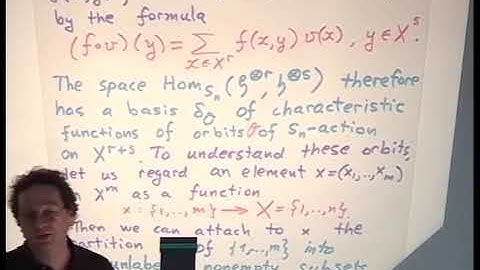 by the formula
(f∘v)(y) = Σ_{x∈X^r} f(x,y) v(x), y∈X^s.
The space Hom_{S_n}(𝔥^{⊗r}, 𝔥^{⊗s}) therefore
has a basis δ_O of characteristic
functions of orbits O of S_n-action
on X^{r+s}. To understand these orbits,
let us regard an element x=(x_1,..,x_m)
on X^m as a function
x : {1,..,m} → X = {1,..,n}.
Then we can attach to x the
partition of {1,..,m} into
unlabeled nonempty subsets